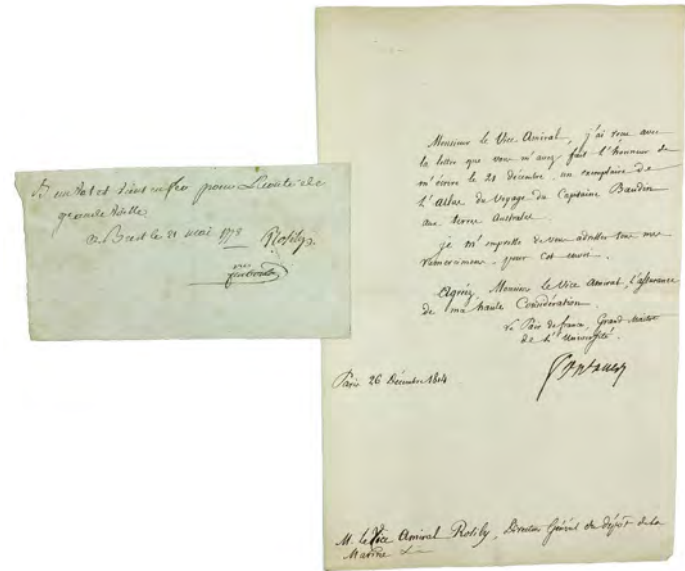 Bon
pour
grande
à Brest le 21 mai 1778 Rosily
Monsieur le Vice Amiral, j'ai reçu avec
la lettre que vous m'avez fait l'honneur de
m'écrire le 21 décembre, un exemplaire de
l'atlas du Voyage du Capitaine Baudin
aux terres Australes.
je m'empresse de vous adresser tous mes
remercimens pour cet envoi.
Agréez, Monsieur le Vice Amiral, l'assurance
de ma haute Considération.
Le Pair de france, Grand Maître
de l'Université.
Fontanes
Paris 26 Décembre 1814
M. le Vice Amiral Rosily, Directeur Général du dépôt de la
Marine